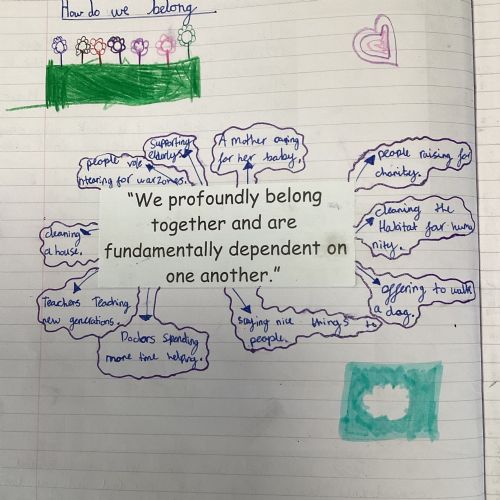 How do we belong
Supporting
elderlys.
A mother caring
for her baby.
people vole
ntearing for warzones.
people raising for
charity.
"We profoundly belong
together and are
fundamentally dependent on
one another."
cleaning the
Habitat for huma
nity.
cleaning
a house.
offering to walk
a dog.
Teachers Teaching
new generations.
saying nice things to
people.
Doctors spending
more time helping.